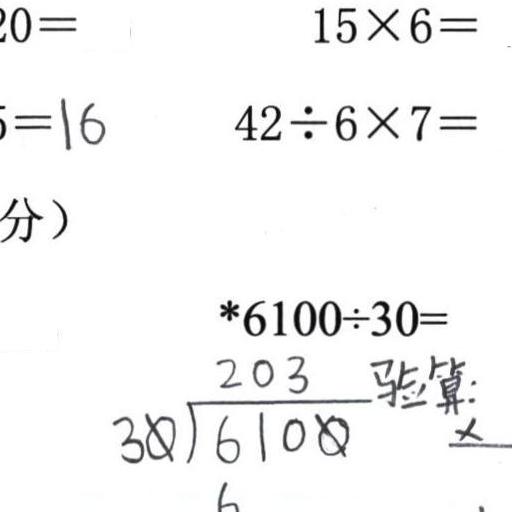 20= 15×6=
5=16 42÷6×7=
分）
*6100÷30=
203 验算:
30)6100 ×
6